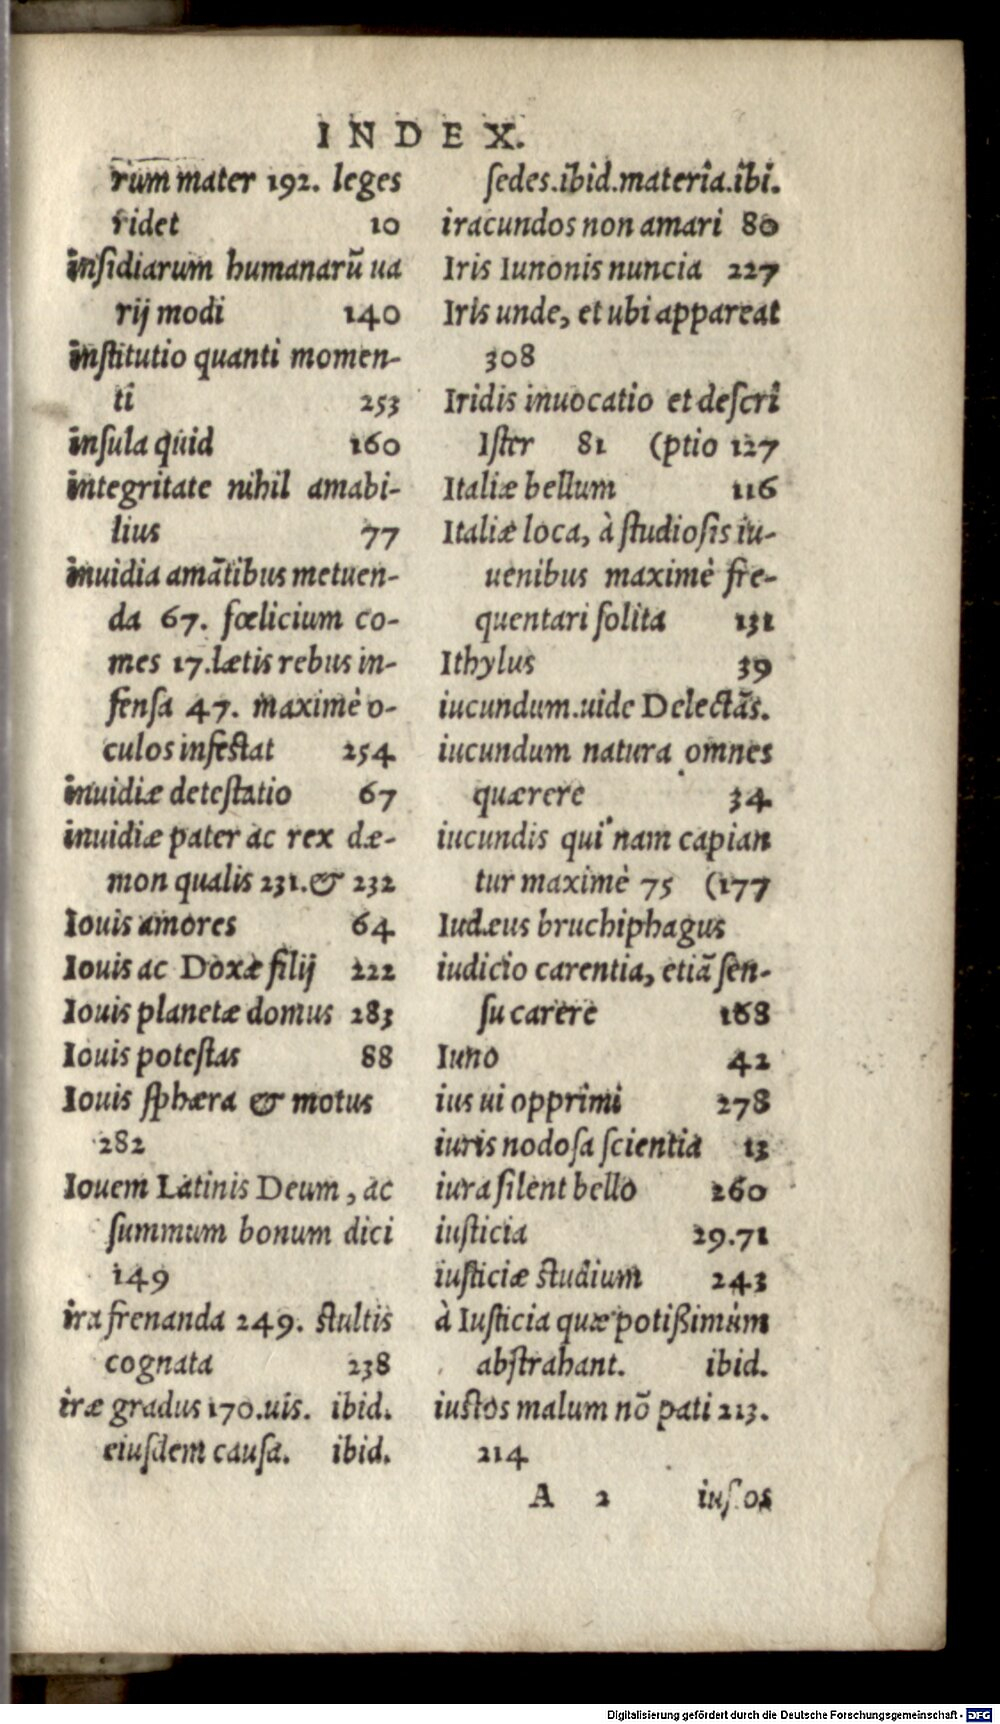 INDEX.
rum mater 192. leges
ridet 10
insidiarum humanarũ ua
rij modi 140
institutio quanti momen-
ti 253
insula quid 160
integritate nihil amabi-
lius 77
inuidia amãtibus metuen-
da 67. fœlicium co-
mes 17. lætis rebus in-
fensa 47. maximè o-
culos infestat 254
inuidiæ detestatio 67
inuidiæ pater ac rex dæ-
mon qualis 231. & 232
Iouis amores 64
Iouis ac Doxæ filij 222
Iouis planetæ domus 283
Iouis potestas 88
Iouis sphæra & motus
282
Iouem Latinis Deum, ac
summum bonum dici
149
ira frenanda 249. stultis
cognata 238
iræ gradus 170. uis. ibid.
eiusdem causa. ibid.
sedes. ibid. materia. ibi.
iracundos non amari 80
Iris Iunonis nuncia 227
Iris unde, et ubi appareat
308
Iridis inuocatio et descri
Ister 81 (ptio 127
Italiæ bellum 116
Italiæ loca, à studiosis iu-
uenibus maximè fre-
quentari solita 131
Ithylus 39
iucundum. uide Delectãs.
iucundum natura omnes
quærere 34
iucundis qui nam capian
tur maximè 75 (177
Iudæus bruchiphagus
iudicio carentia, etiã sen-
su carere 168
Iuno 42
ius ui opprimi 278
iuris nodosa scientia 13
iura silent bello 260
iusticia 29. 71
iusticiæ studium 243
à Iusticia quæ potißimùm
abstrahant. ibid.
iustos malum nõ pati 213.
214
A 2 ius os
Digitalisierung gefördert durch die Deutsche Forschungsgemeinschaft - DFG